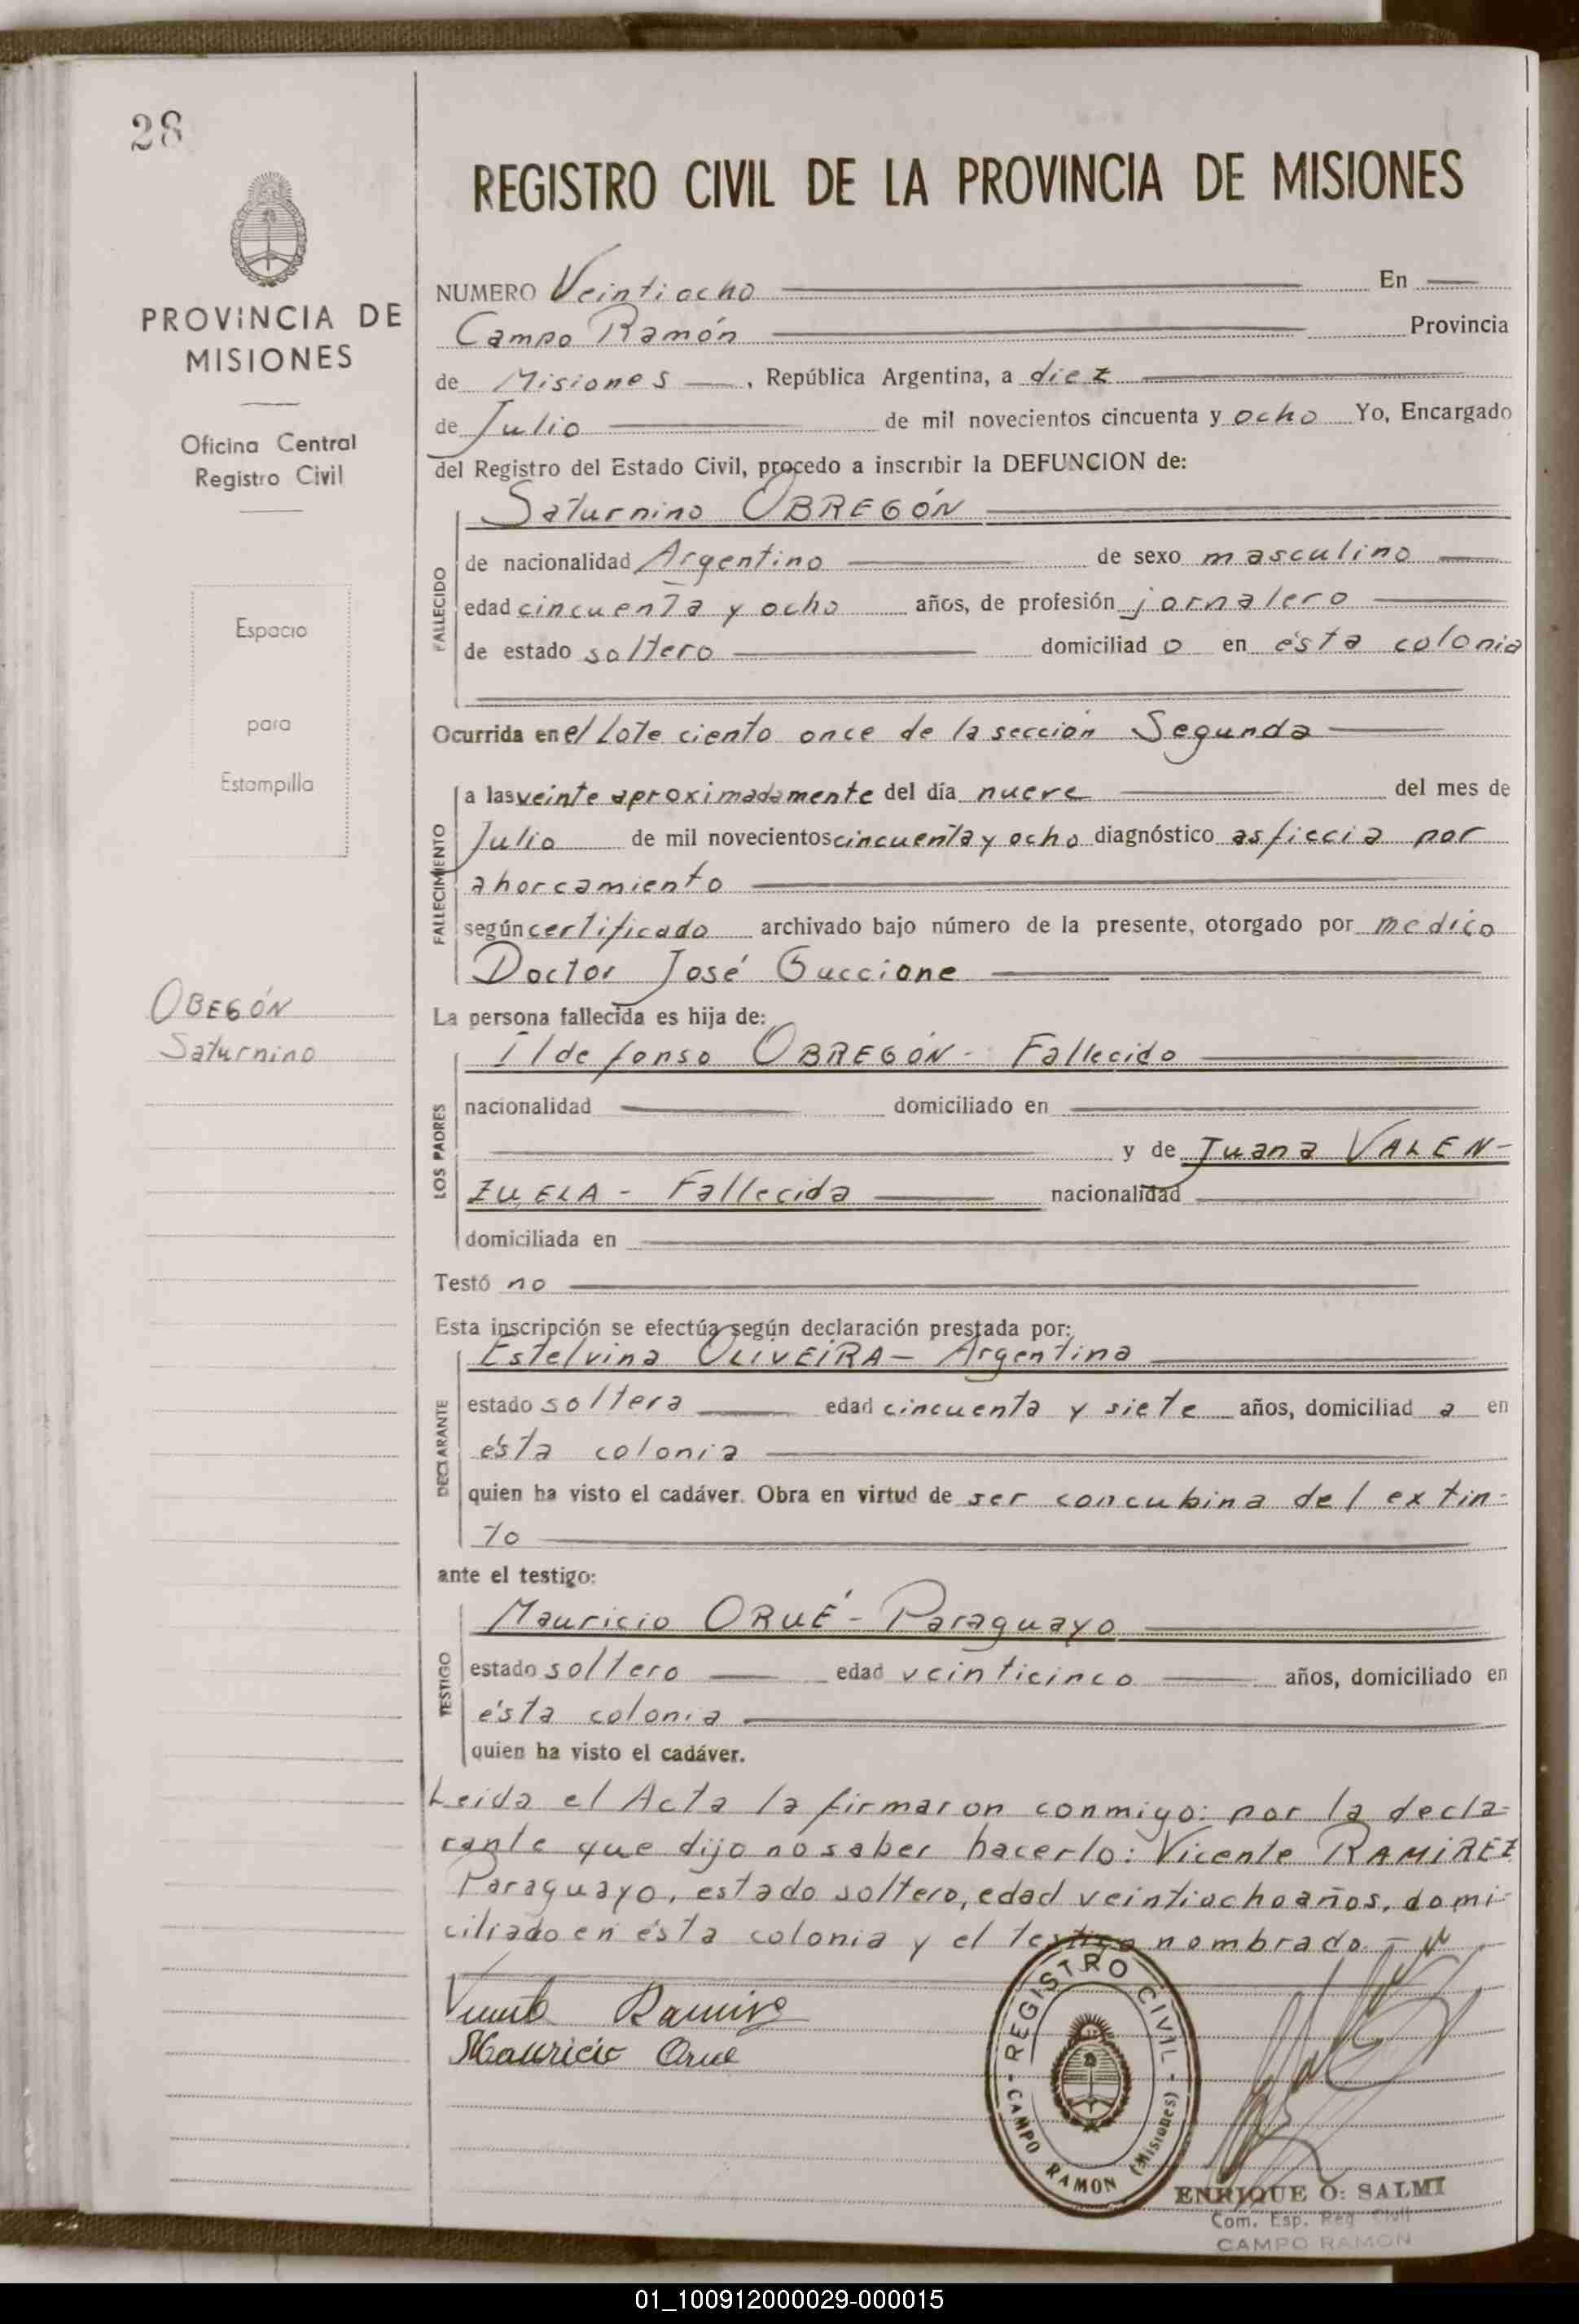 28
PROVINCIA DE
MISIONES
Oficina Central
Registro Civil
Espacio
para
Estampilla
OBEGÓN
Saturnino
REGISTRO CIVIL DE LA PROVINCIA DE MISIONES
NUMERO Veintiocho En
Campo Ramón Provincia
de Misiones, República Argentina, a diez
de Julio de mil novecientos cincuenta y ocho Yo, Encargado
del Registro del Estado Civil, procedo a inscribir la DEFUNCION de:
Saturnino OBREGÓN
FALLECIDO
de nacionalidad Argentino de sexo masculino
edad cincuenta y ocho años, de profesión jornalero
de estado soltero domiciliad o en ésta colonia
Ocurrida en el Lote ciento once de la sección Segunda
FALLECIMIENTO
a las veinte aproximadamente del día nueve del mes de
Julio de mil novecientos cincuenta y ocho diagnóstico asficcia por
ahorcamiento
según certificado archivado bajo número de la presente, otorgado por medico
Doctor José Guccione
La persona fallecida es hija de:
LOS PADRES
Ildefonso OBREGÓN - Fallecido
nacionalidad domiciliado en
y de Juana VALEN-
ZUELA - Fallecida nacionalidad
domiciliada en
Testó no
Esta inscripción se efectúa según declaración prestada por:
DECLARANTE
Estelvina OLIVEIRA - Argentina
estado soltera edad cincuenta y siete años, domiciliad a en
ésta colonia
quien ha visto el cadáver. Obra en virtud de ser concubina del extin-
to
ante el testigo:
TESTIGO
Mauricio ORUÉ - Paraguayo
estado soltero edad veinticinco años, domiciliado en
ésta colonia
quien ha visto el cadáver.
Leida el Acta la firmaron conmigo: por la decla-
rante que dijo no saber hacerlo: Vicente RAMIREZ
Paraguayo, estado soltero, edad veintiocho años, domi-
ciliado en ésta colonia y el testigo nombrado.-
Vicente Ramirez
Mauricio Orue
REGISTRO CIVIL
CAMPO RAMON (Misiones)
ENRIQUE O. SALMI
Com. Esp. Reg. Civil
CAMPO RAMON
01_100912000029-000015